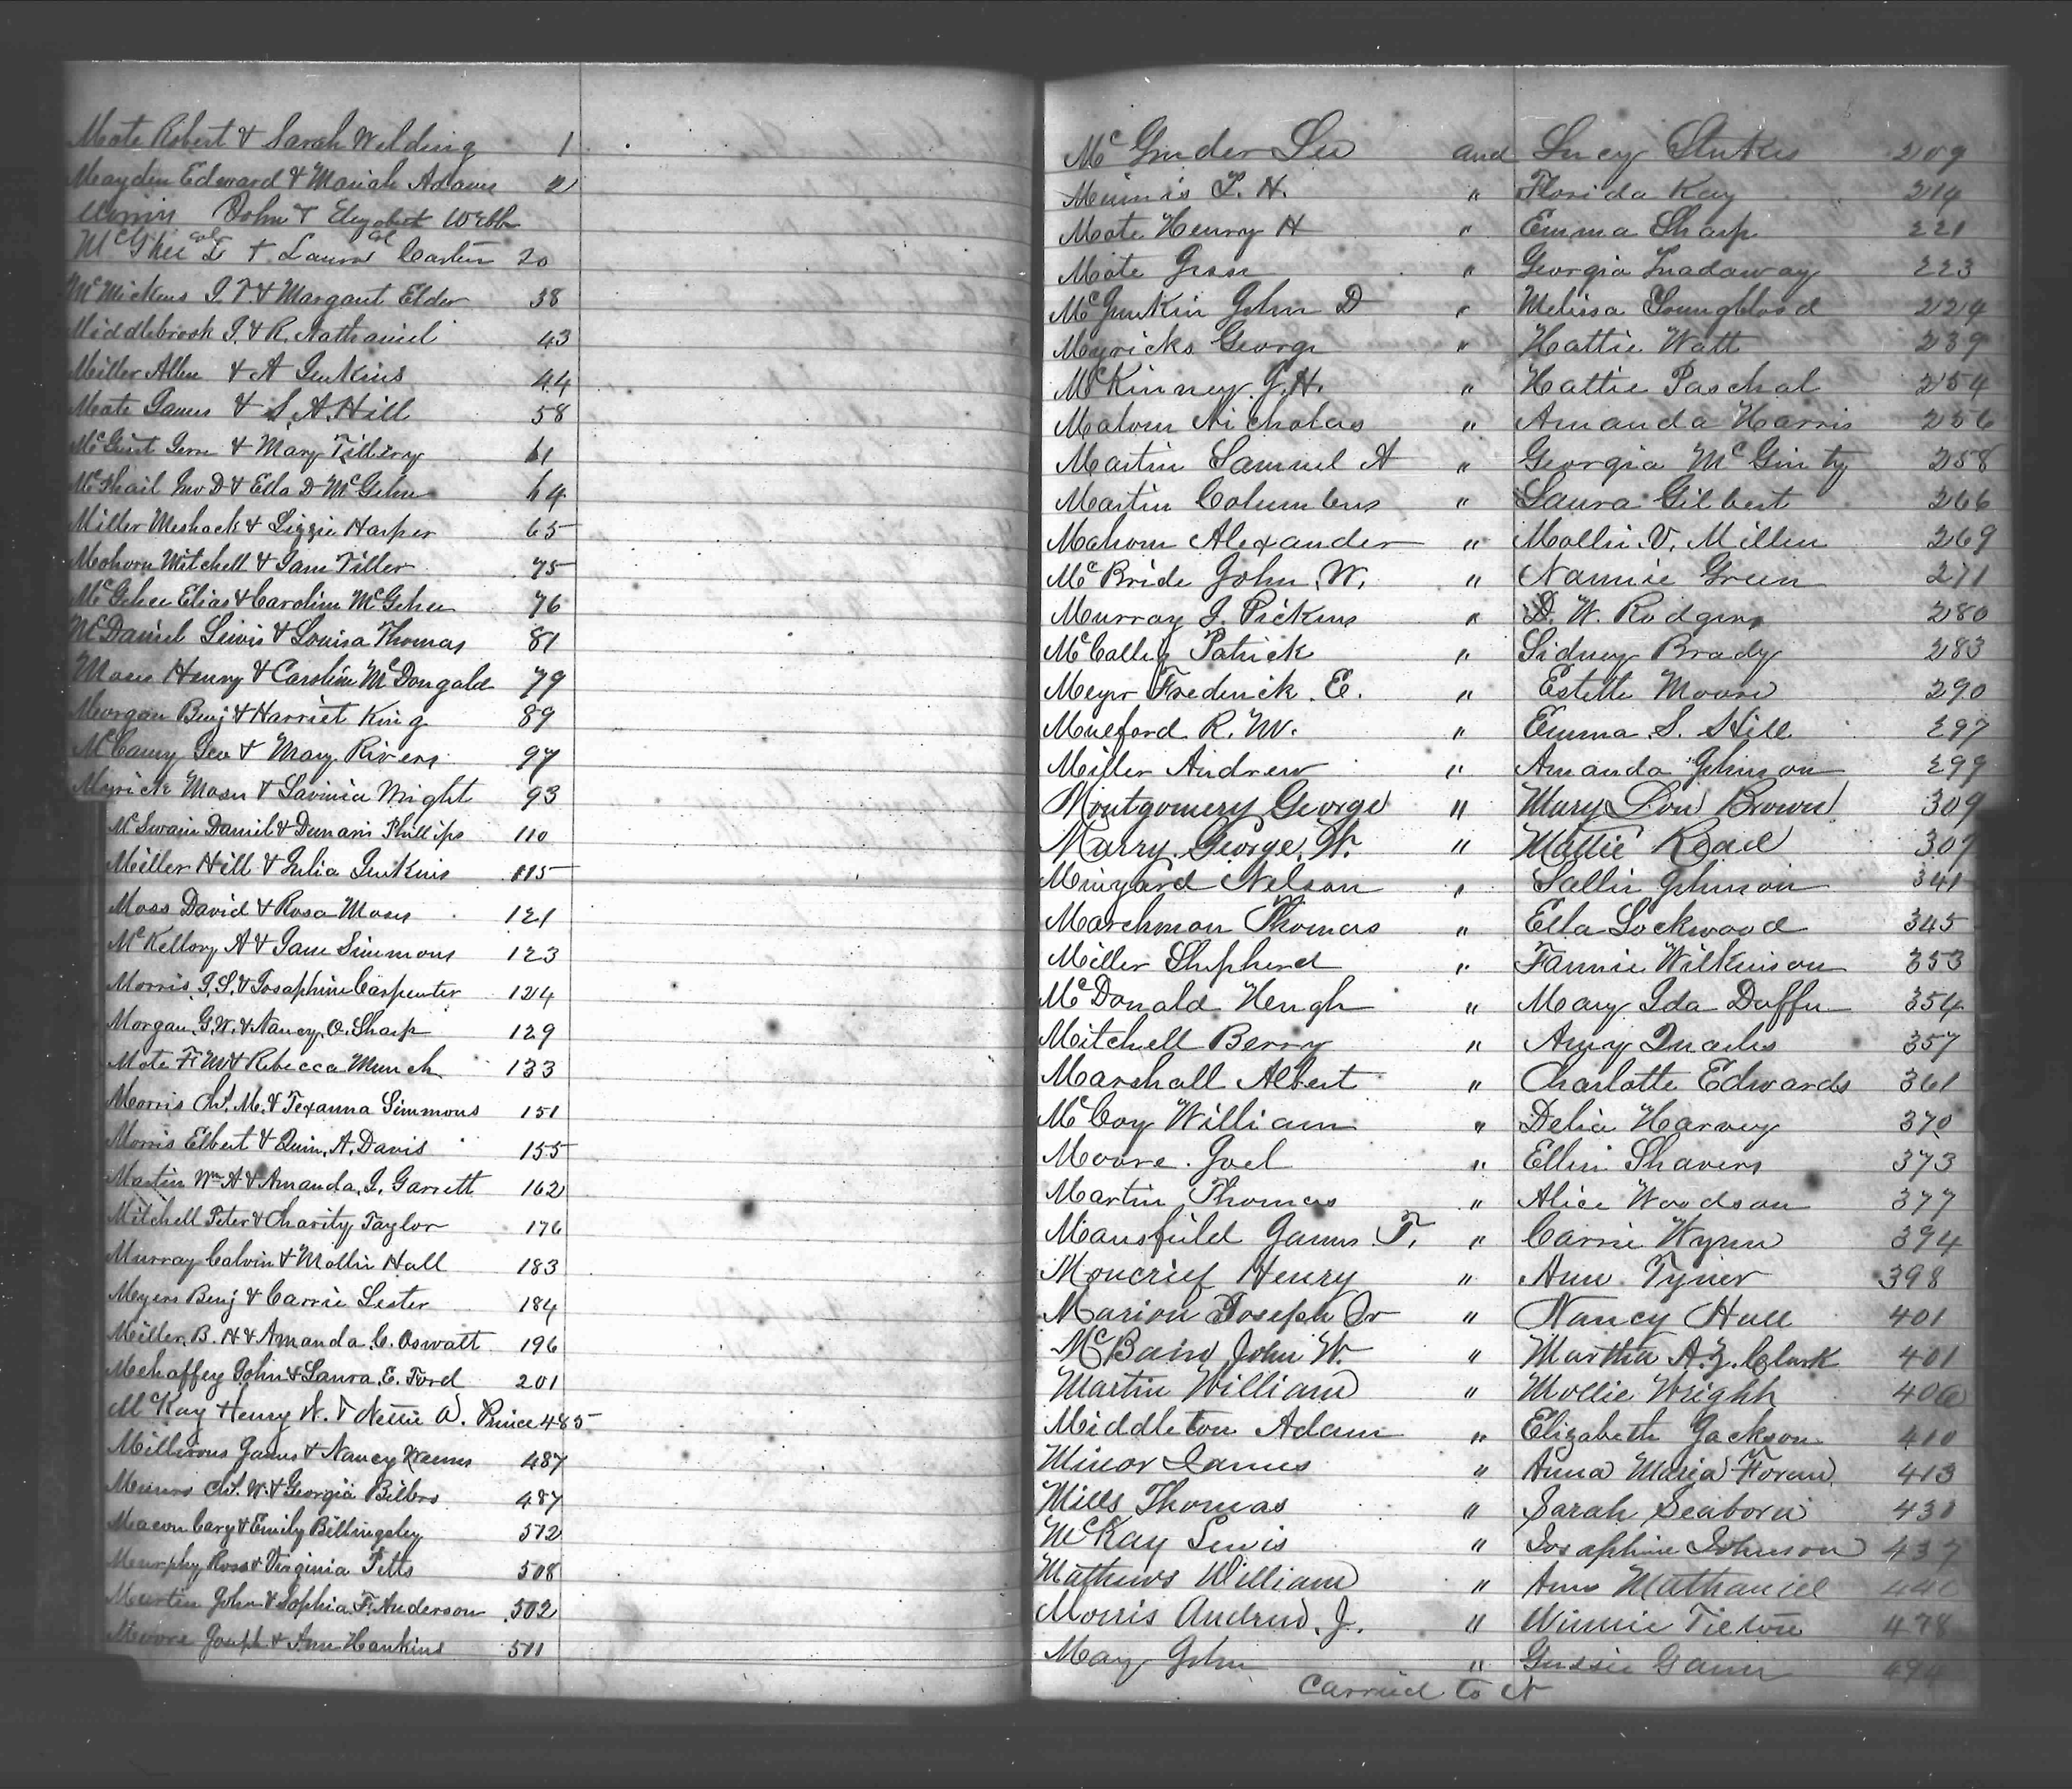 Mote Robert & Sarah Welding 1
Mayden Edward & Mariah Adams 2
John & Elizabeth Webb
McGhee col & Laura Carter col 20
McMickens J. T. & Margaut Elder 38
Middlebrook J. & R. Nathaniel 43
Miller Allen & A Jenkins 44
Mote James & S. A. Hill 58
McGint & Mary Tillery 61
McPhail Jno D & Ella D McGehee 64
Miller Meshack & Lizzie Harper 65
Mohorn Mitchell & Jane Tiller 75
McGehee Elias & Caroline McGehee 76
McDaniel Lewis & Louisa Thomas 81
Moses Henry & Caroline McDongald 79
Morgan Benj & Harriet King 89
Geo & Mary Rivers 97
Myrick Moses & Lavinia Wright 93
McSwain Daniel & Dunaris Phillips 110
Miller Hill & Julia Jenkins 115
Moss David & Rosa Moses 121
McKellory A & Jane Simmons 123
Morris J. S. & Josaphine Carpenter 124
Morgan G. W. & Nancy O. Sharp 129
Mote F. M & Rebecca Munch 133
Morris Ch. M. & Texanna Simmons 151
Morris Elbert & Quin. A. Davis 155
Martin Wm A & Amanda J. Garrett 162
Mitchell Peter & Charity Taylor 176
Murray Calvin & Mollie Hall 183
Meyers Benj & Carrie Lester 184
Miller B. H & Amanda C. Oswalt 196
Mehaffey John & Laura E. Ford 201
McKay Henry W. & Nettie A. Prince 485
Millirons James & Nancy Weems 487
Ch. W. & Georgia Billbro 487
Macon Cary & Emily Billingsley 512
Murphy Ross & Virginia Pitts 508
Martin John & Sophia F. Anderson 502
Moore Joseph & Ann Hankins 501
McGruder Lee and Lucy Stukes 209
Mimis T. H. " Florida Kay 214
Mote Henry H " Emma Sharp 221
Mote Jesse " Georgia Treadaway 223
McJunkin John D " Melissa Youngblood 224
Meyricks George " Hattie Watt 239
McKinney J. H. " Hattie Paschal 254
Mahorn Nicholas " Amanda Harris 256
Martin Samuel A " Georgia McGinty 258
Martin Columbus " Laura Gilbert 266
Mahorn Alexander " Mollie V. Millen 269
McBride John W. " Nannie Green 271
Murray J. Pickens " D. W. Rodgers 280
McColley Patrick " Sidney Brady 283
Meyer Frederick E. " Estelle Moore 290
Mulford R. M. " Emma S. Hill 297
Miller Andrew " Amanda Johnson 299
Montgomery George " Mary Lou Brown 309
Marry George W. " Mattie Road 307
Minyard Nelson " Sallie Johnson 341
Marchman Thomas " Ella Lockwood 345
Miller Shepherd " Fannie Wilkinson 353
McDonald Hengh " Mary Ida Duffee 354
Mitchell Berry " Amy Quarles 357
Marshall Albert " Charlotte Edwards 361
McCoy William " Delia Harvey 370
Moore Joel " Ellen Shavers 373
Martin Thomas " Alice Woodson 377
Mansfield James T. " Carrie Wynn 394
Moncrief Henry " Ann Tyner 398
Marion Joseph Jr " Nancy Hall 401
McBain John W. " Martha A. Z. Clark 401
Martin William " Mollie Wright 406
Middleton Adam " Elizabeth Jackson 410
Minor James " Anna Maria Foran 413
Mills Thomas " Sarah Seaborn 431
McKay Lewis " Josaphine Johnson 437
Mathews William " Ann Mathaniel
Morris Andrew J. " Winnie Tieton 478
May John " Gussie Gann 494
Carried to N